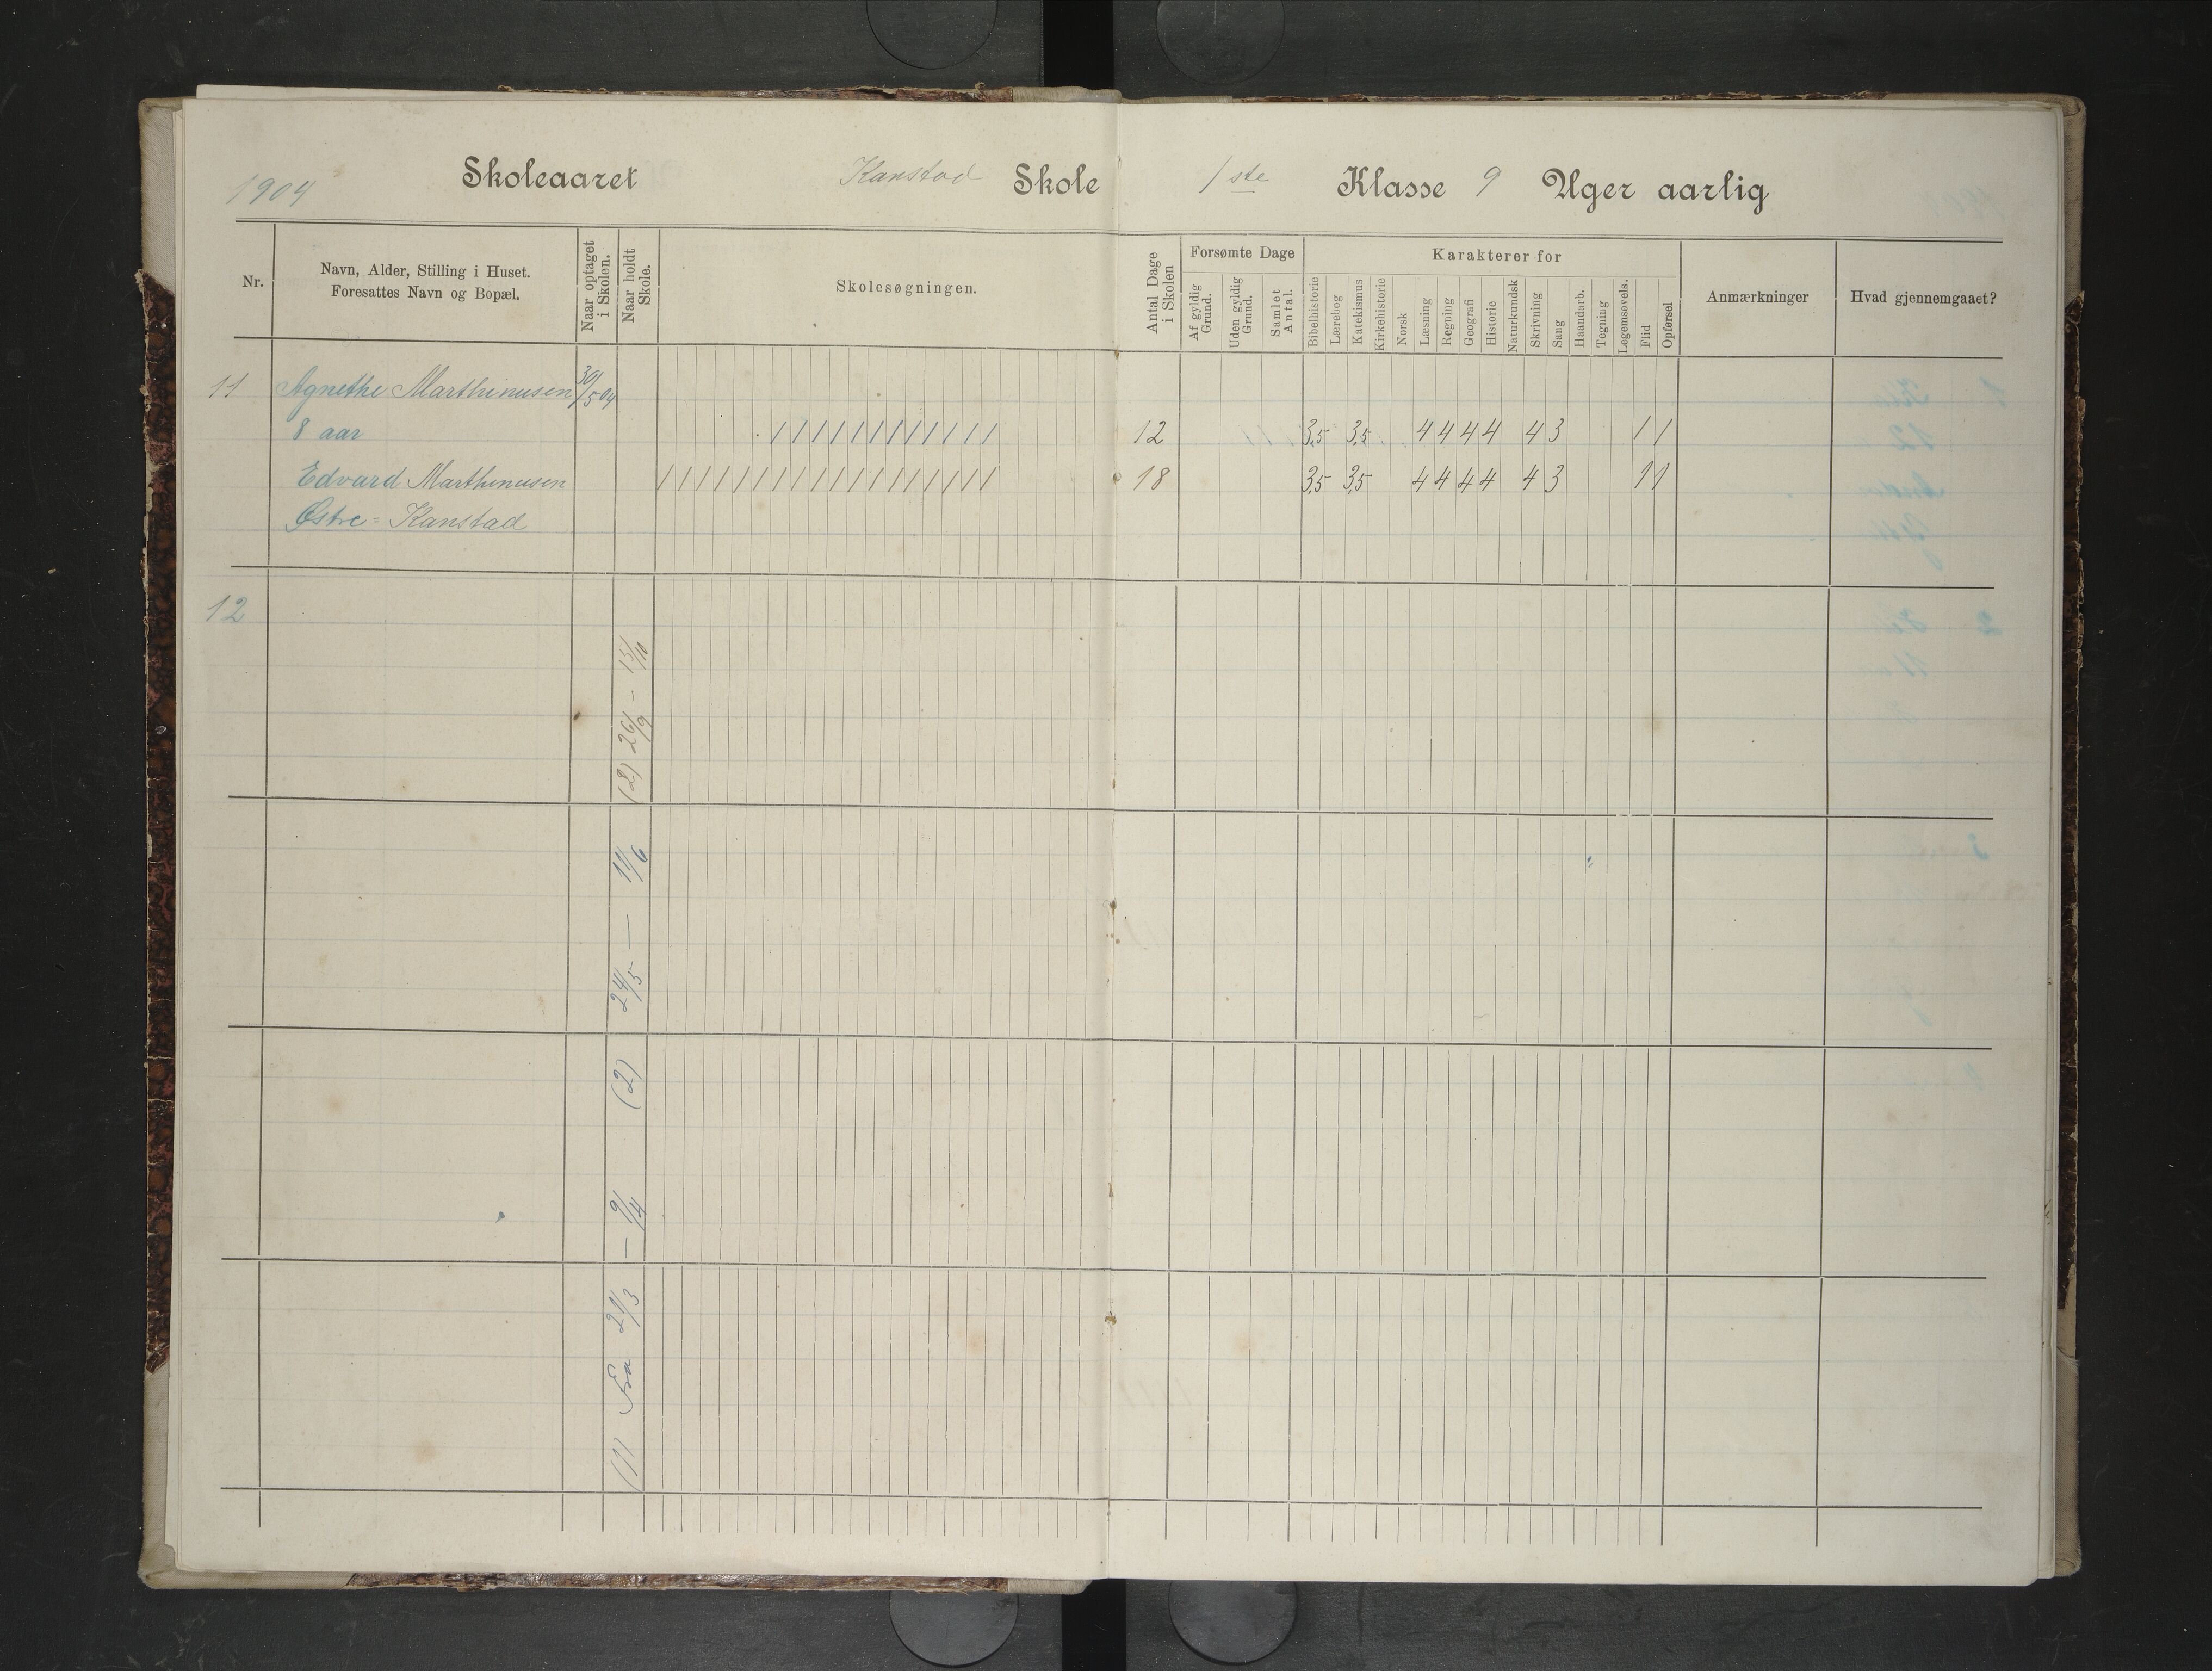 1904 Skoleaaret Kanstad Skole 1ste Klasse 9 Uger aarlig
Nr.
Navn, Alder, Stilling i Huset.
Foresattes Navn og Bopæl.
Naar optaget
i Skolen.
Naar holdt
Skole.
Skolesøgningen.
Antal Dage
i Skolen
Forsømte Dage
Af gyldig
Grund.
Uden gyldig
Grund.
Samlet
Antal.
Karakterer for
Bibelhistorie
Lærebog
Katekismus
Kirkehistorie
Norsk
Læsning
Regning
Geografi
Historie
Naturkundsk
Skrivning
Sang
Haandarb.
Tegning
Legemsøvels.
Flid
Opførsel
Anmærkninger
Hvad gjennemgaaet?
11 Agnethe Marthinusen 30/5 04
8 aar / / / / / / / / / / / / 12 3,5 3,5 4 4 4 4 4 3 1 1
Edvard Marthinusen / / / / / / / / / / / / / / / / / / 18 3,5 3,5 4 4 4 4 4 3 1 1
Østre = Kanstad
12
(1) Fra 21/3 — 9/4 (2) 24/5 — 11/6 (2) 26/9 — 15/10